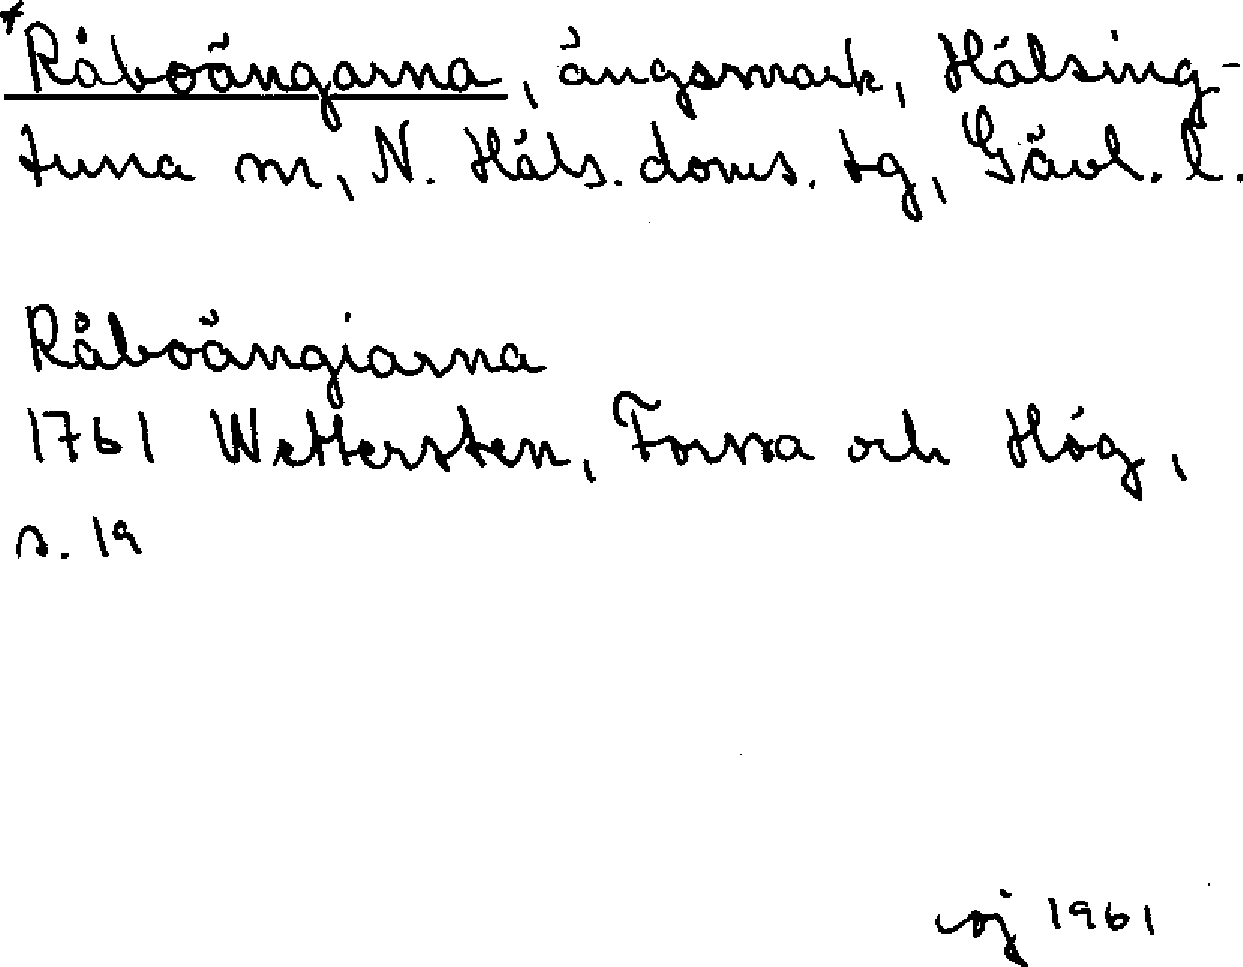 *Råboängarna, ängsmark, Hälsing-
tuna sn, N. Häls. doms. tg, Gävl. l.
Råboängiarna
1761 Wettersten, Forssa och Hög,
s. 19
1961